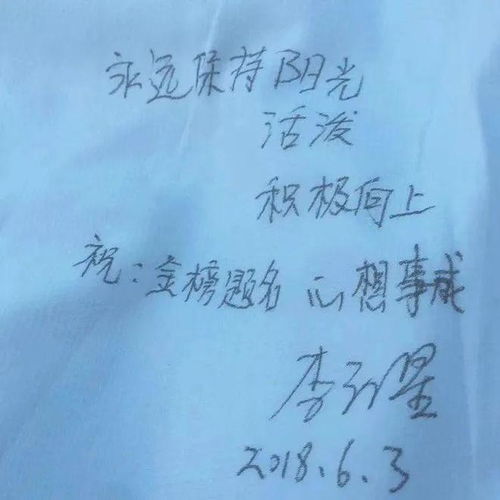 永远保持阳光
活泼
积极向上
祝:金榜题名 心想事成
李
2018.6.3